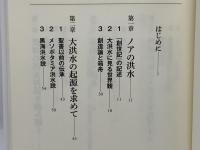 はじめに
第一章 ノアの洪水 11
1 「創世記」の記述 11
2 大洪水に見る世界観
3 創造論と箱舟
第二章 大洪水の起源を求めて
1 聖書以前の伝承
2 メソポタミア洪水説
3 黒海洪水説